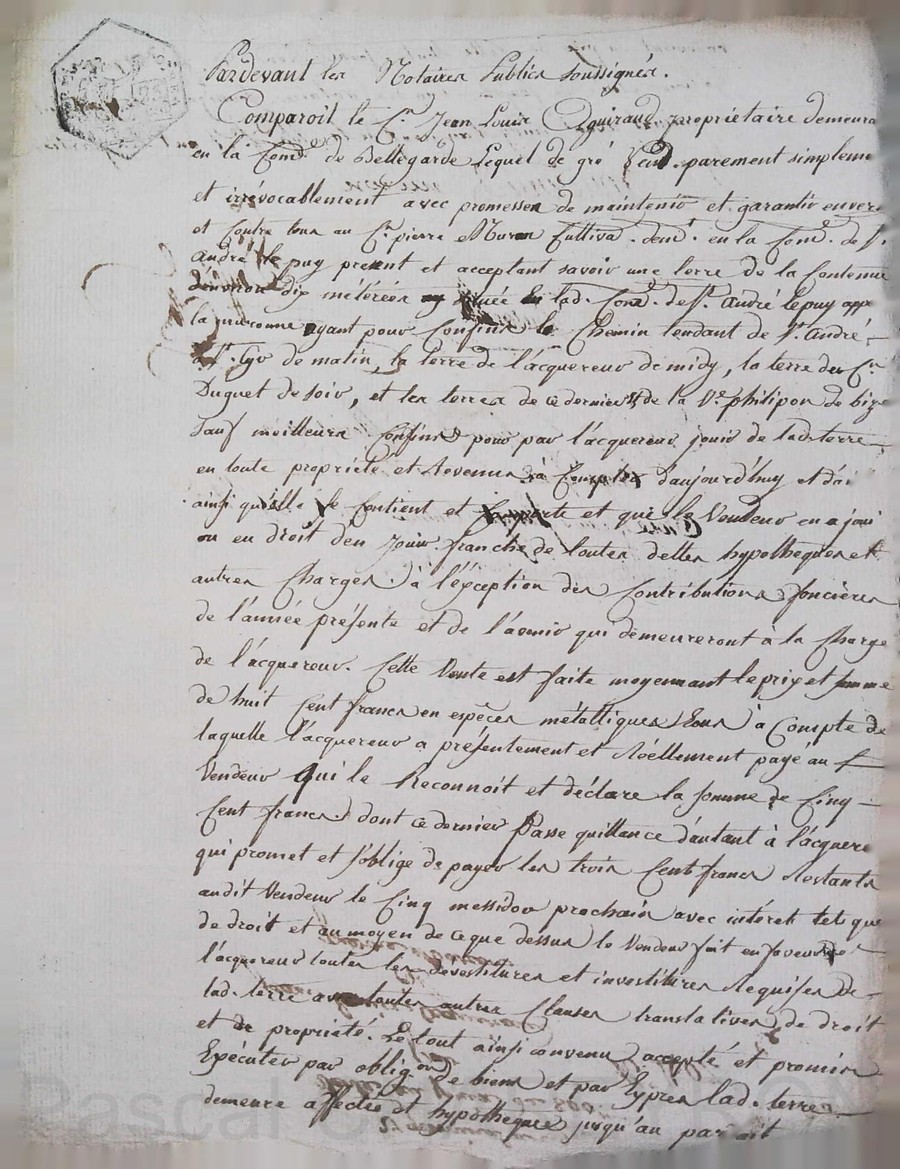 Pardevant les Notaires Publics soussignés.
Comparoit le Cn. Jean Louis Eguiraud propriétaire demeura
en la Comé. de Bellegarde Lequel de gré Vend. purement simpleme
et irrévocablement avec promesses de maintenir et garantir envers
et Contre tous au Cn. pierre Muron Cultiva. demt. en la Comé. de St.
André le puy present et acceptant savoir une terre de la Contenue
d'environ dix métérées située en lad. Comé. de St. André le puy appe
la muronne ayant pour Confins le Chemin tendant de St. André
à St. Cyr de matin, la terre de l'acquereur de midy, la terre du Cn.
Duguet de soir, et les terres de ce dernier et de la Ve. philipon de bize
Sauf meilleurs Confins pour par l'acquereur jouir de lad. terre
en toute propriété et Revenus à Compter d'aujourd'huy et
ainsi qu'elle se Contient et Comporte et que le Vendeur en a joui
ou en droit d'en Jouir franche de toutes dettes hypotheques et
autres Charges à l'éxception des Contributions foncières
de l'année présente et de l'avenir qui demeureront à la Charge
de l'acquereur. Cette Vente est faite moyennant le prix et somme
de huit Cent francs en espêces métalliques Sous à Compte de
laquelle l'acquereur a présentement et Réellement payé au
Vendeur qui le Reconnoit et déclare la somme de Cinq
Cent francs dont ce dernier Passe quittance d'autant à l'acquere
qui promet et s'oblige de payer les trois Cent francs Restants
audit Vendeur le Cinq messidor prochain avec intéret tel que
de droit et au moyen de ce que dessus le Vendeur fait en faveur de
l'acquereur toutes les devestitures et investitures Requises de
lad. terre avec toutes autres Clauses translatives de droit
et de propriété. Le tout ainsi convenu accepté et promis
Exécuter par obligon. de biens et par Exprès lad. terre
demeure affectée et hypotheque jusqu'au parfait
Pascal